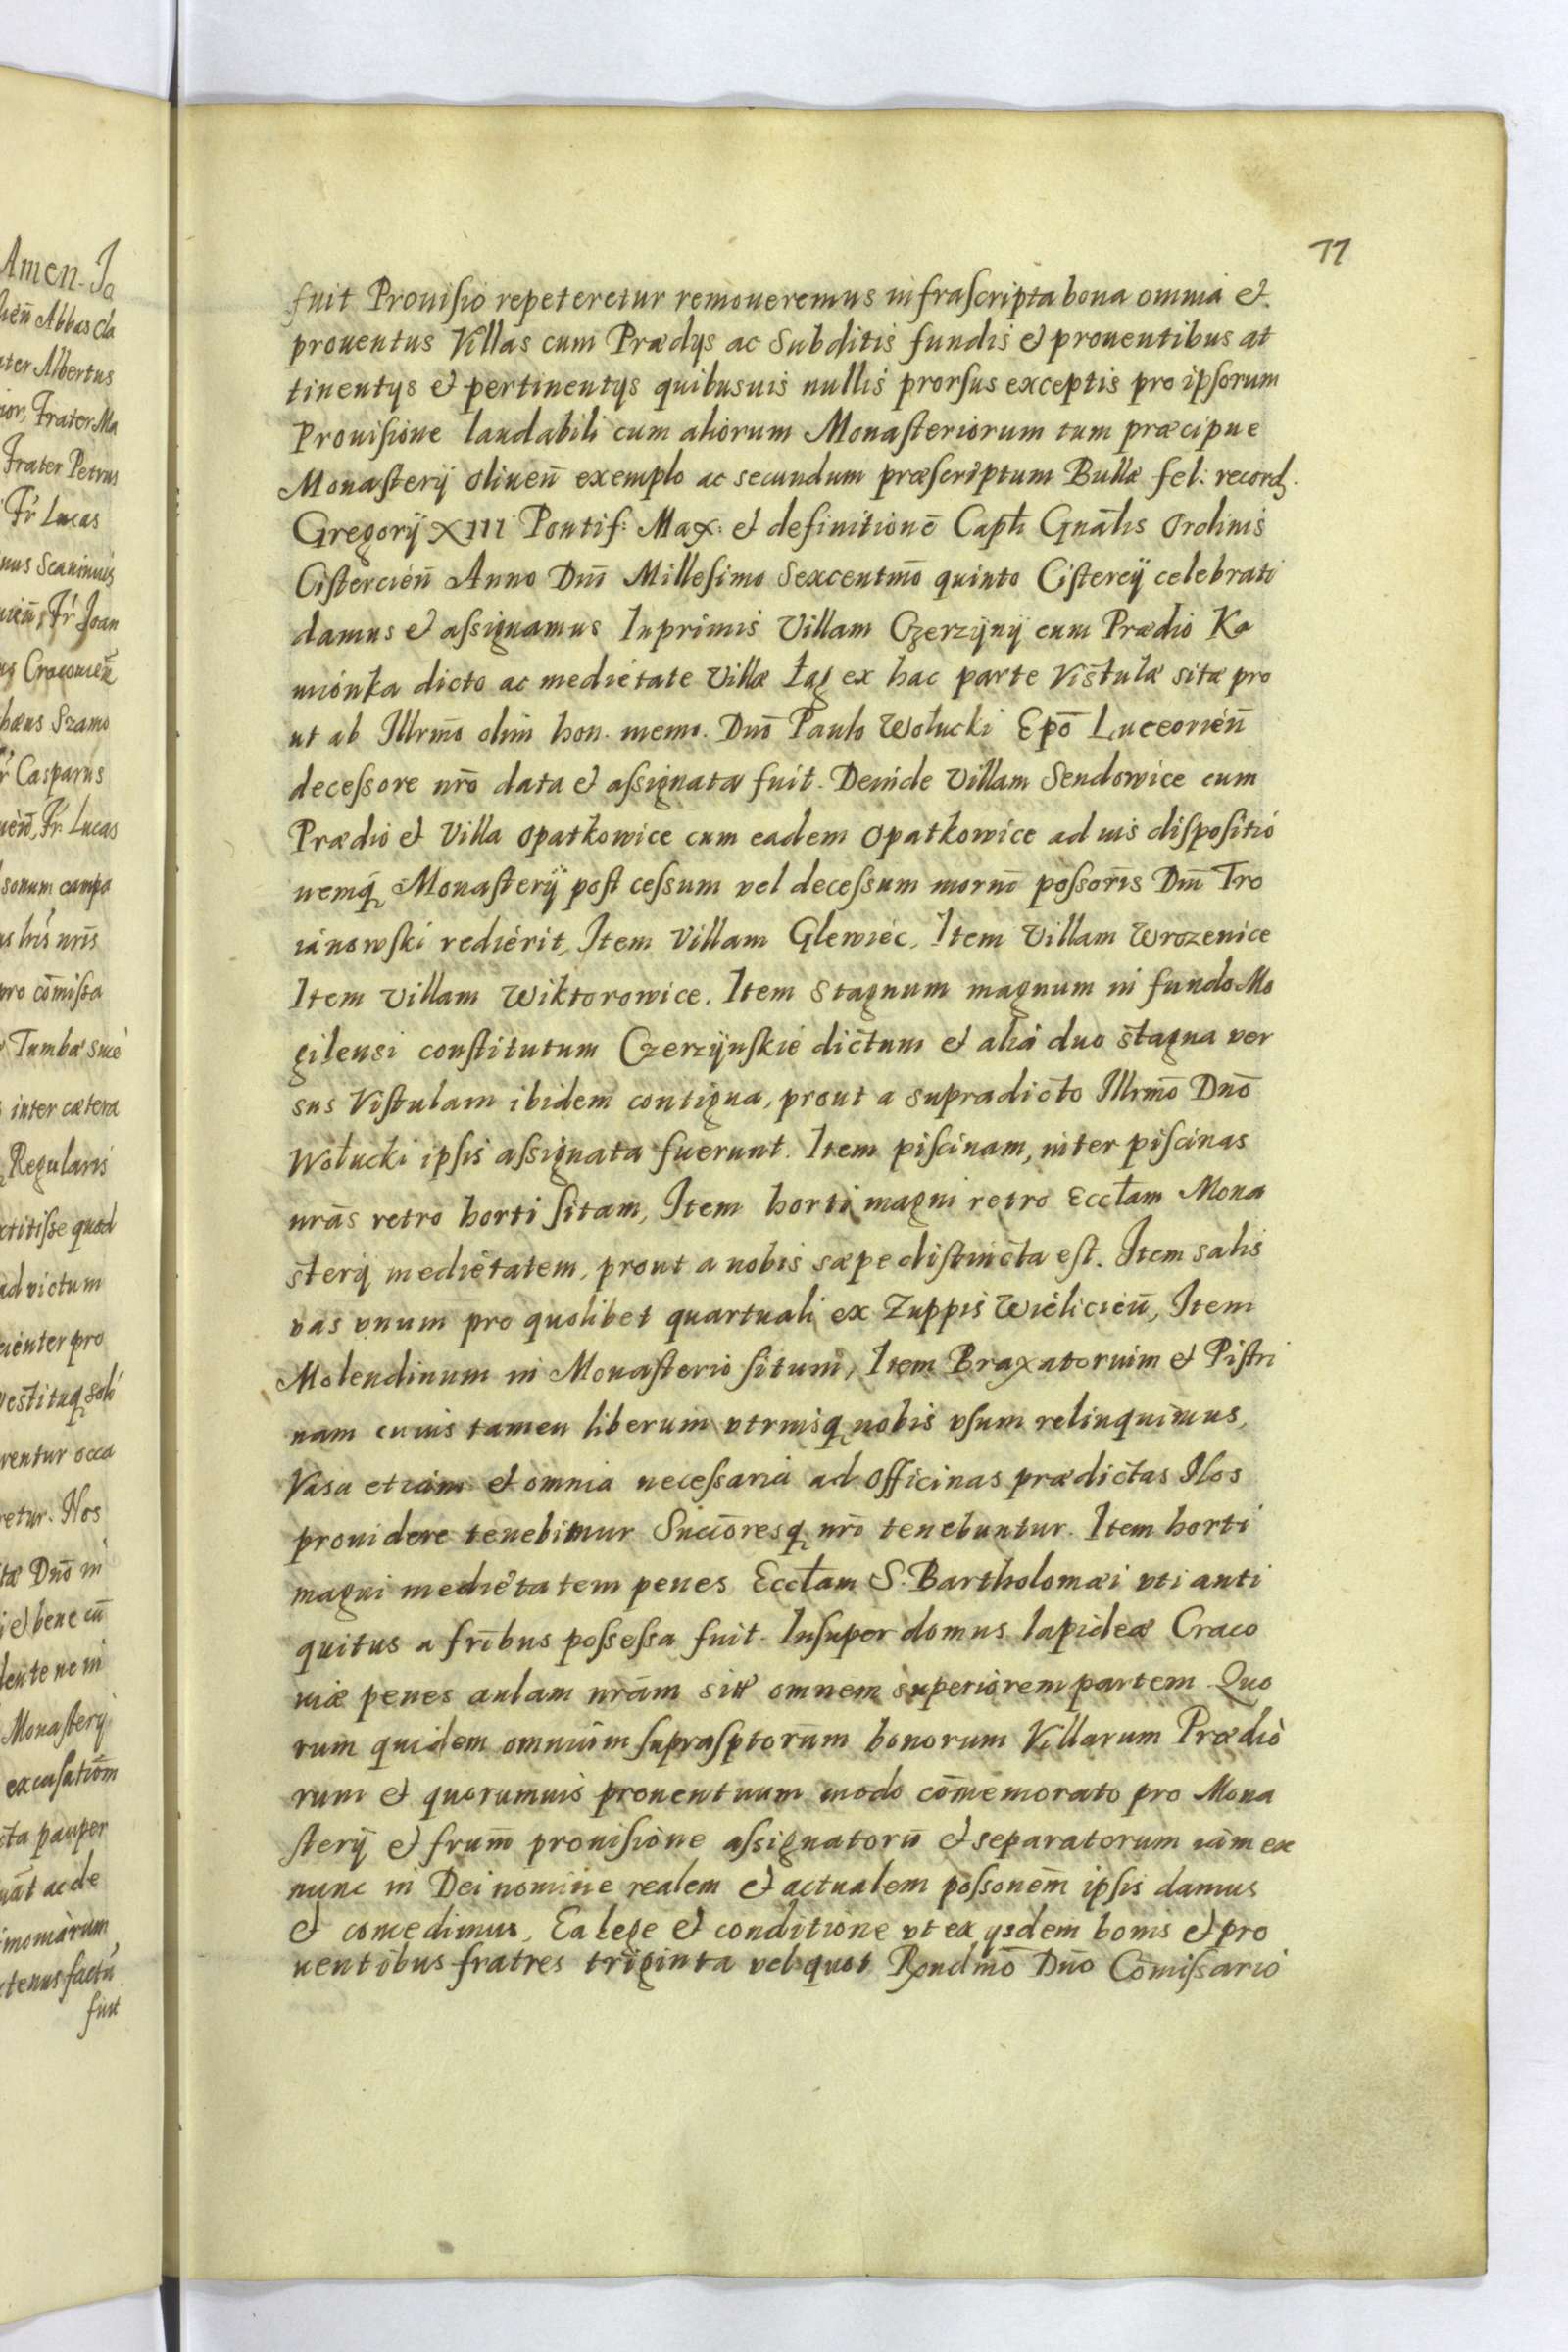 Amen. Jo
ien̄ Abbas Cla
ater Albertus
ior, Frater Ma
Frater Petrus
Fr̄ Lucas
Fr̄ Joan
us Cracouien̄
Szamo
r̄ Casparus
Fr. Lucas
sonum campa
nr̄is
pro cōmissa
Tumbæ
inter cætera
Regularis
extitisse quod
ad victum
pro
occa
retur. Nos
tæ Dnō in
i et bene cū
lente ne in
Monasterÿ
excusatiōm
cta pauper
ac de
tenus factū
fuit
77
fuit Prouisio repeteretur remoueremus infrascripta bona omnia et
prouentus Villas cum Prædÿs ac Subditis fundis et prouentibus at
tinentÿs et pertinentÿs quibusuis nullis prorsus exceptis pro ipsorum
Prouisione laudabili cum aliorum Monasteriorum tum præcipue
Monasterÿ oliuen̄ exemplo ac secundum præscriptum Bullæ fel: record.
Gregorÿ XIII Pontif: Max: et definitionē Capłi Gnālis Ordinis
Cistercien̄ Anno Dnī Millesimo Sexcentmō quinto Cistercÿ celebrati
damus et assignamus Inprimis Villam Czerzÿnÿ cum Prædio Ka
mionka dicto ac medietate Villæ Łąg ex hac parte Vistulæ sitæ pro
ut ab Illrmō olim hon. memo. Dnō Paulo Wołucki Epō Luceorien̄
decessore nrō data et assignata fuit. Deinde Villam Sendowice cum
Prædio et Villa Opatkowice cum eadem Opatkowice ad ius dispositio
nemq̨ Monasterÿ post cessum vel decessum mornī possoris Dnī Tro
ianowski redierit, Item Villam Glewiec, Item Villam Wrozenice
Item Villam Wiktorowice. Item Stagnum magnum in fundo Mo
gilensi constitutum Czerzÿnskie dictum et alia duo stagna ver
sus Vistulam ibidem contigua, prout a supradicto Illrmō Dnō
Wołucki ipsis assignata fuerunt. Item piscinam, inter piscinas
nrās retro horti sitam, Item horti magni retro Eccłam Mona
sterÿ medietatem, prout a nobis sæpe distincta est. Item salis
vas vnum pro quolibet quartuali ex Zuppis Wielicien̄, Item
Molendinum in Monasterio situm, Item Braxatorium et Pistri
nam cuius tamen liberum vtriusq̨ nobis vsum relinquimus,
Vasa etiam et omnia necessaria ad Officinas prædictas Nos
prouidere tenebimur Succōresq̨ nrī tenebuntur. Item horti
magni medietatem penes Eccłam S. Bartholomæi vti anti
quitus a frībus possessa fuit. Insuper domus lapideæ Craco
uiæ penes aulam nrām sitæ omnem superiorem partem Quo
rum quidem omnium suprasptorum bonorum Villarum Prædio
rum et quorumuis prouentuum modo cōmemorato pro Mona
sterÿ et frum̄ prouisione assignatorū et separatorum iam ex
nunc in Dei nomine realem et actualem possonem̄ ipsis damus
et concedimus, Ea lege et conditione vt ex ÿsdem bonis et pro
uentibus fratres triginta vel quot Rxndmō Dnō Cōmissario